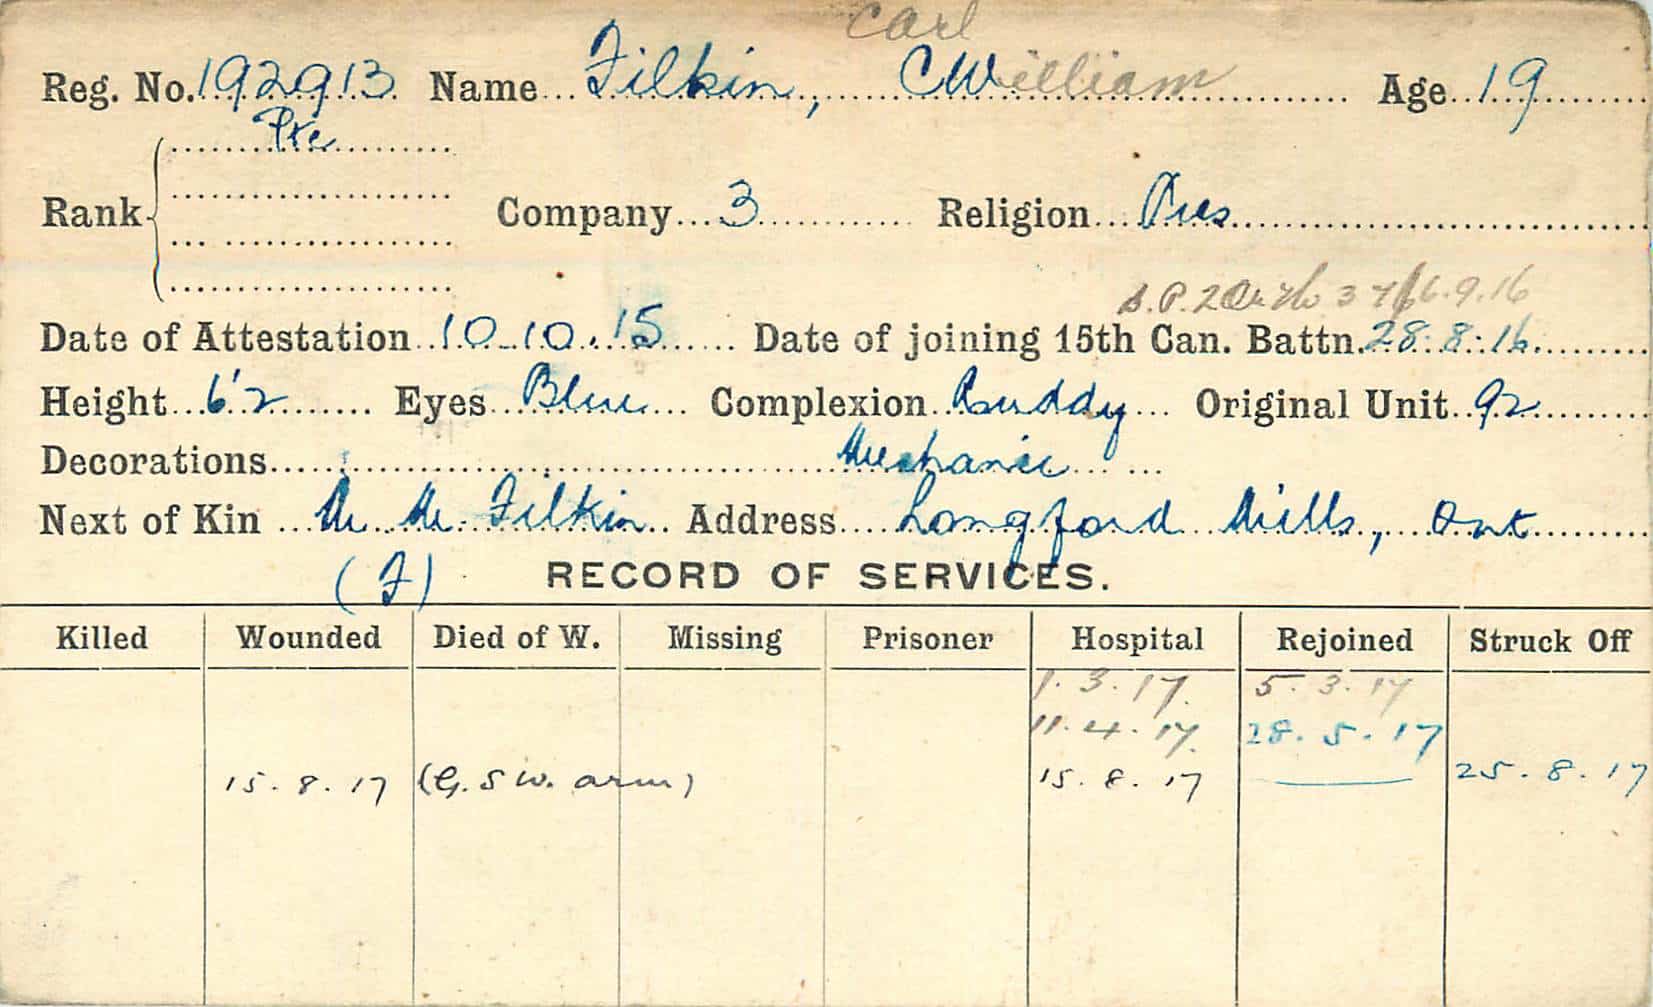 Carl
Reg. No. 192913 Name Filkin, CWilliam Age 19
Pte
Rank Company 3 Religion Pres
16.9.16
Date of Attestation 10.10.15 Date of joining 15th Can. Battn. 28.8.16
Height 6'2 Eyes Blue Complexion Ruddy Original Unit 92
Decorations Mechanic
Next of Kin Filkin Address Longford Mills, Ont
(F) RECORD OF SERVICES.
Killed Wounded Died of W. Missing Prisoner Hospital Rejoined Struck Off
1.3.17 5.3.17
11.4.17 28.5.17
15.8.17 (G.S.W. arm) 15.8.17 25.8.17